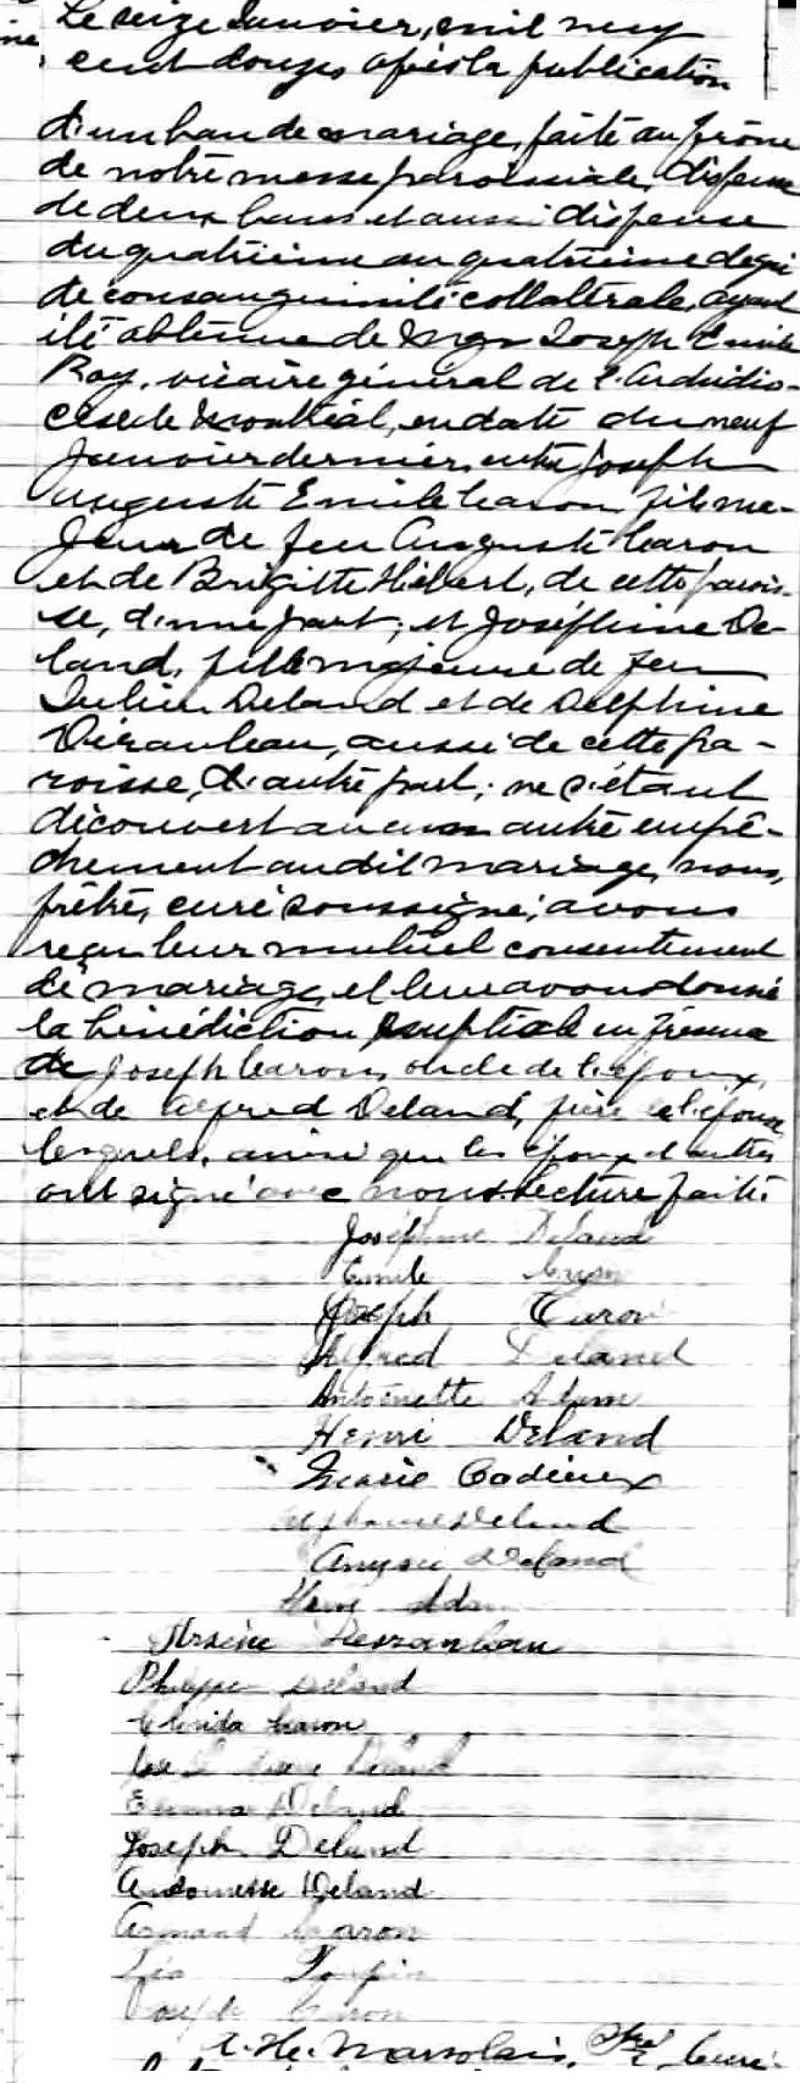 Le seize Janvier, mil neuf
cent douze, après la publication
d'un ban de mariage, faite au prône
de notre messe paroissiale, dispense
de deux bans et aussi dispense
du quatrième au quatrième degré
de consanguinité collatérale, ayant
été obtenue de Mgr Joseph Emile
Roy, vicaire général de l'Archidio-
cèse de Montréal, en date du neuf
Janvier dernier, entre Joseph
Auguste Emile Caron, fils ma-
jeur de feu Auguste Caron
et de Brigitte Hébert, de cette parois-
se, d'une part; et Joséphine De-
land, fille majeure de feu
Julien Deland et de Delphine
aussi de cette pa-
roisse, d'autre part; ne s'étant
découvert aucun autre empê-
chement audit mariage, nous,
prêtre, curé soussigné, avons
reçu leur mutuel consentement
de mariage, et leur avons donné
la bénédiction nuptiale en présence
de Joseph Caron, oncle de l'époux,
et de Alfred Deland, frère de l'épouse
lesquels, ainsi que les époux et autres
ont signé avec nous. Lecture faite.
Joséphine Deland
Emile Caron
Joseph Caron
Alfred Deland
Antoinette Adam
Henri Deland
Marie Cadieux
Alphonse Deland
Deland
Adam
Arsène
Philippe Deland
Florida Caron
Deland
Emma Deland
Joseph Deland
Deland
Armand Caron
Léa Toupin
Joseph Caron
Ptre Curé